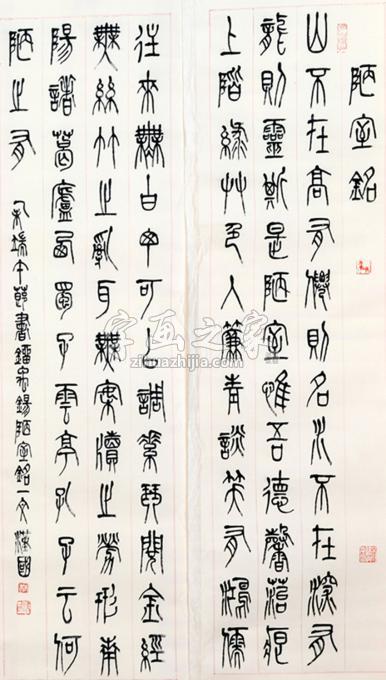 陋室銘
山不在高有僊則名水不在深有
龍則靈斯是陋室惟吾德馨苔痕
上階綠艸色入簾青談笑有鴻儒
往來無白丁可以調素琴閱金經
無絲竹之亂耳無案牘之勞形南
陽諸葛廬西蜀子雲亭孔子云何
陋之有
節書劉禹錫陋室銘一文 漢國
字画之家
zihuazhijia.com